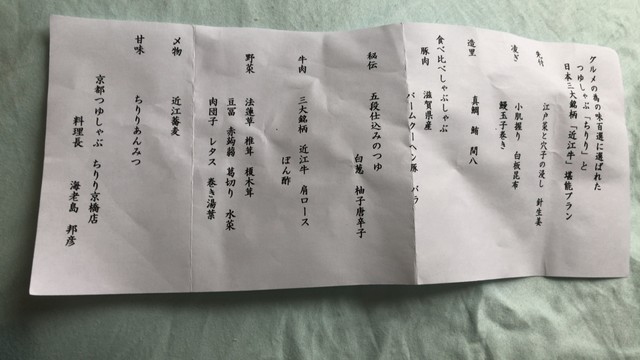 グルメの為の味百選に選ばれた
つゆしゃぶ「ちりり」と
日本三大銘柄「近江牛」堪能プラン
先付
江戸菜と穴子の浸し 針生姜
凌ぎ
小肌握り 白板昆布
鰻玉子巻き
造里
真鯛 鮪 間八
食べ比べしゃぶしゃぶ
豚肉 滋賀県産
バームクーヘン豚 バラ
秘伝 五段仕込みのつゆ
白葱 柚子唐辛子
牛肉 三大銘柄 近江牛 肩ロース
ぽん酢
野菜 法蓮草 椎茸 榎木茸
豆冨 赤蒟蒻 葛切り 水菜
肉団子 レタス 巻き湯葉
〆物 近江蕎麦
甘味 ちりりあんみつ
京都つゆしゃぶ ちりり京橋店
料理長 海老島 邦彦